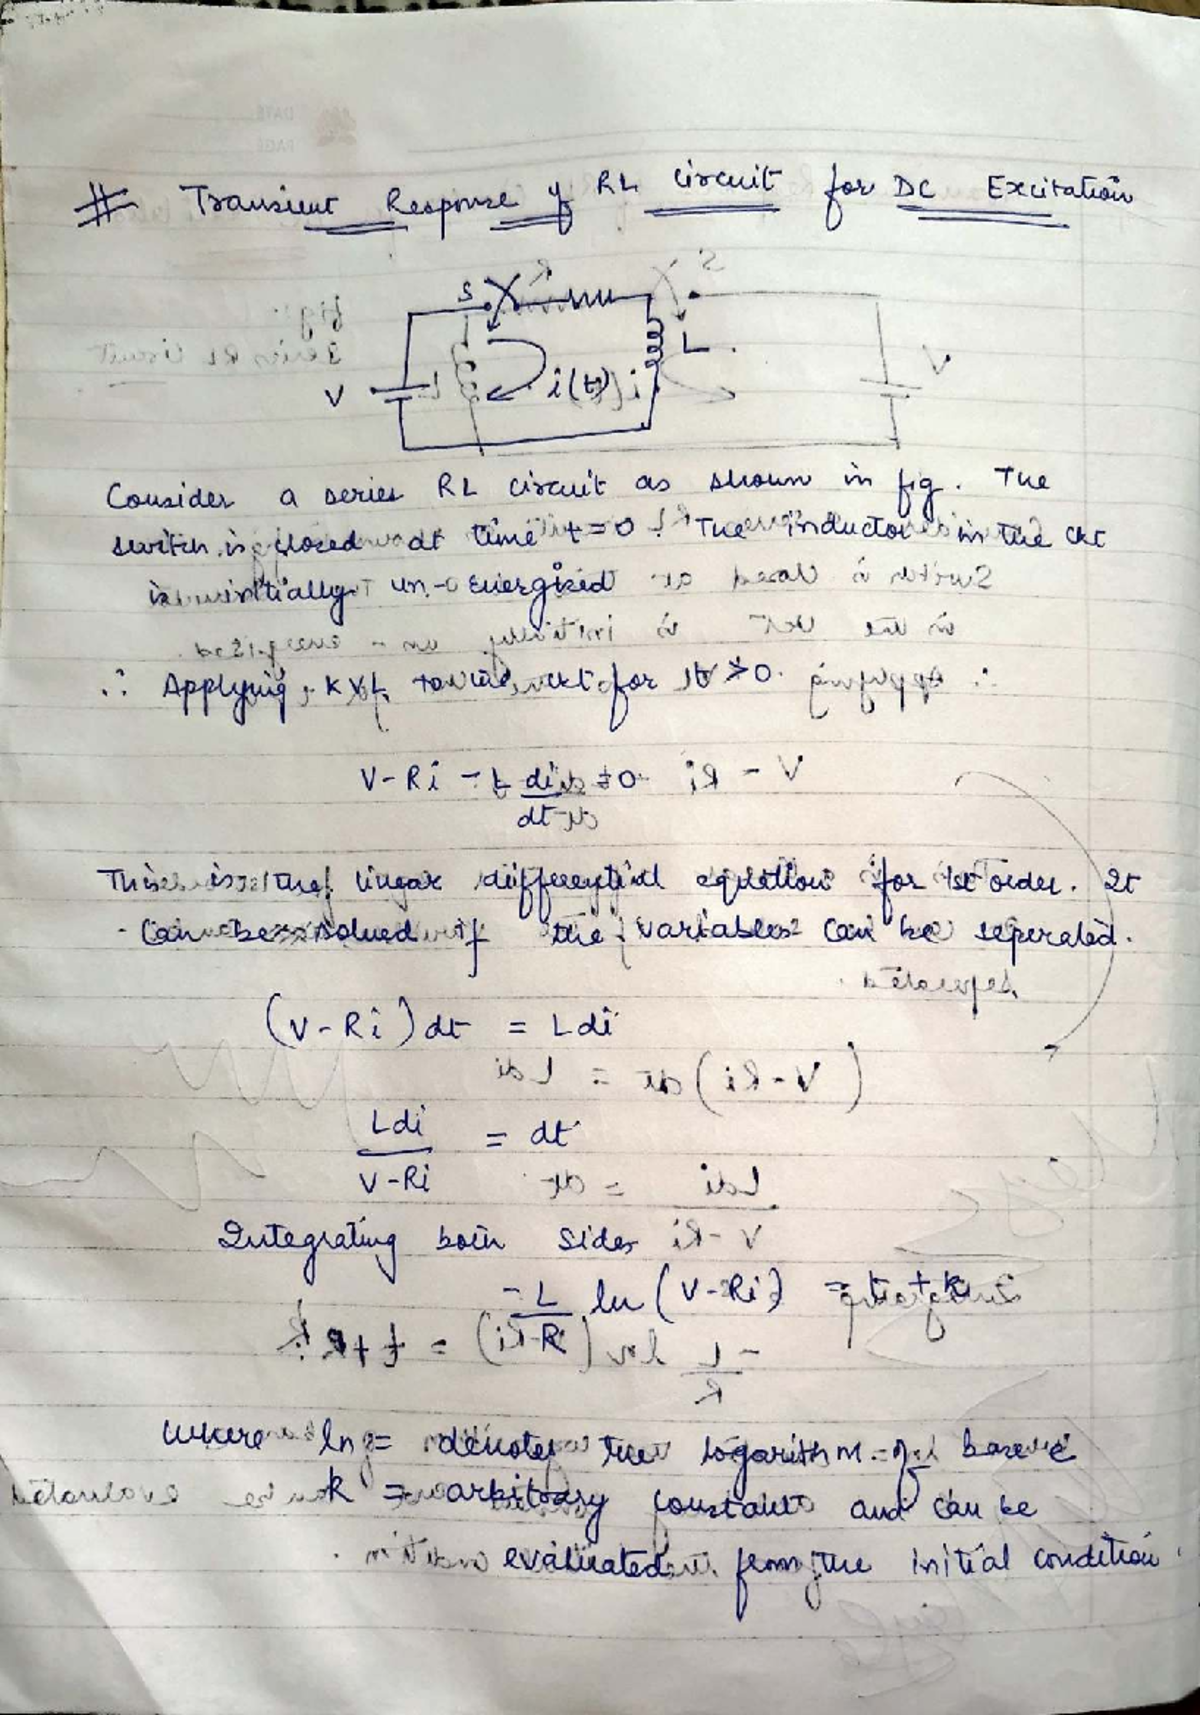 # Transient Response of RL circuit for DC Excitation
S
V
L
i(t)
Consider a series RL circuit as shown in fig. The
switch is closed at time t=0. The inductor in the ckt
is initially un-energised
∴ Applying KVL to the ckt for t>0.
V-Ri - L di/dt = 0
This is the linear differential equation for 1st order. It
can be solved if the variables can be seperated.
(V-Ri)dt = Ldi
Ldi/V-Ri = dt
Integrating both sides
-L/R ln(V-Ri) = t+k
where ln = denotes the logarithm of base e
k = arbitrary constant and can be
evaluated from the initial condition.